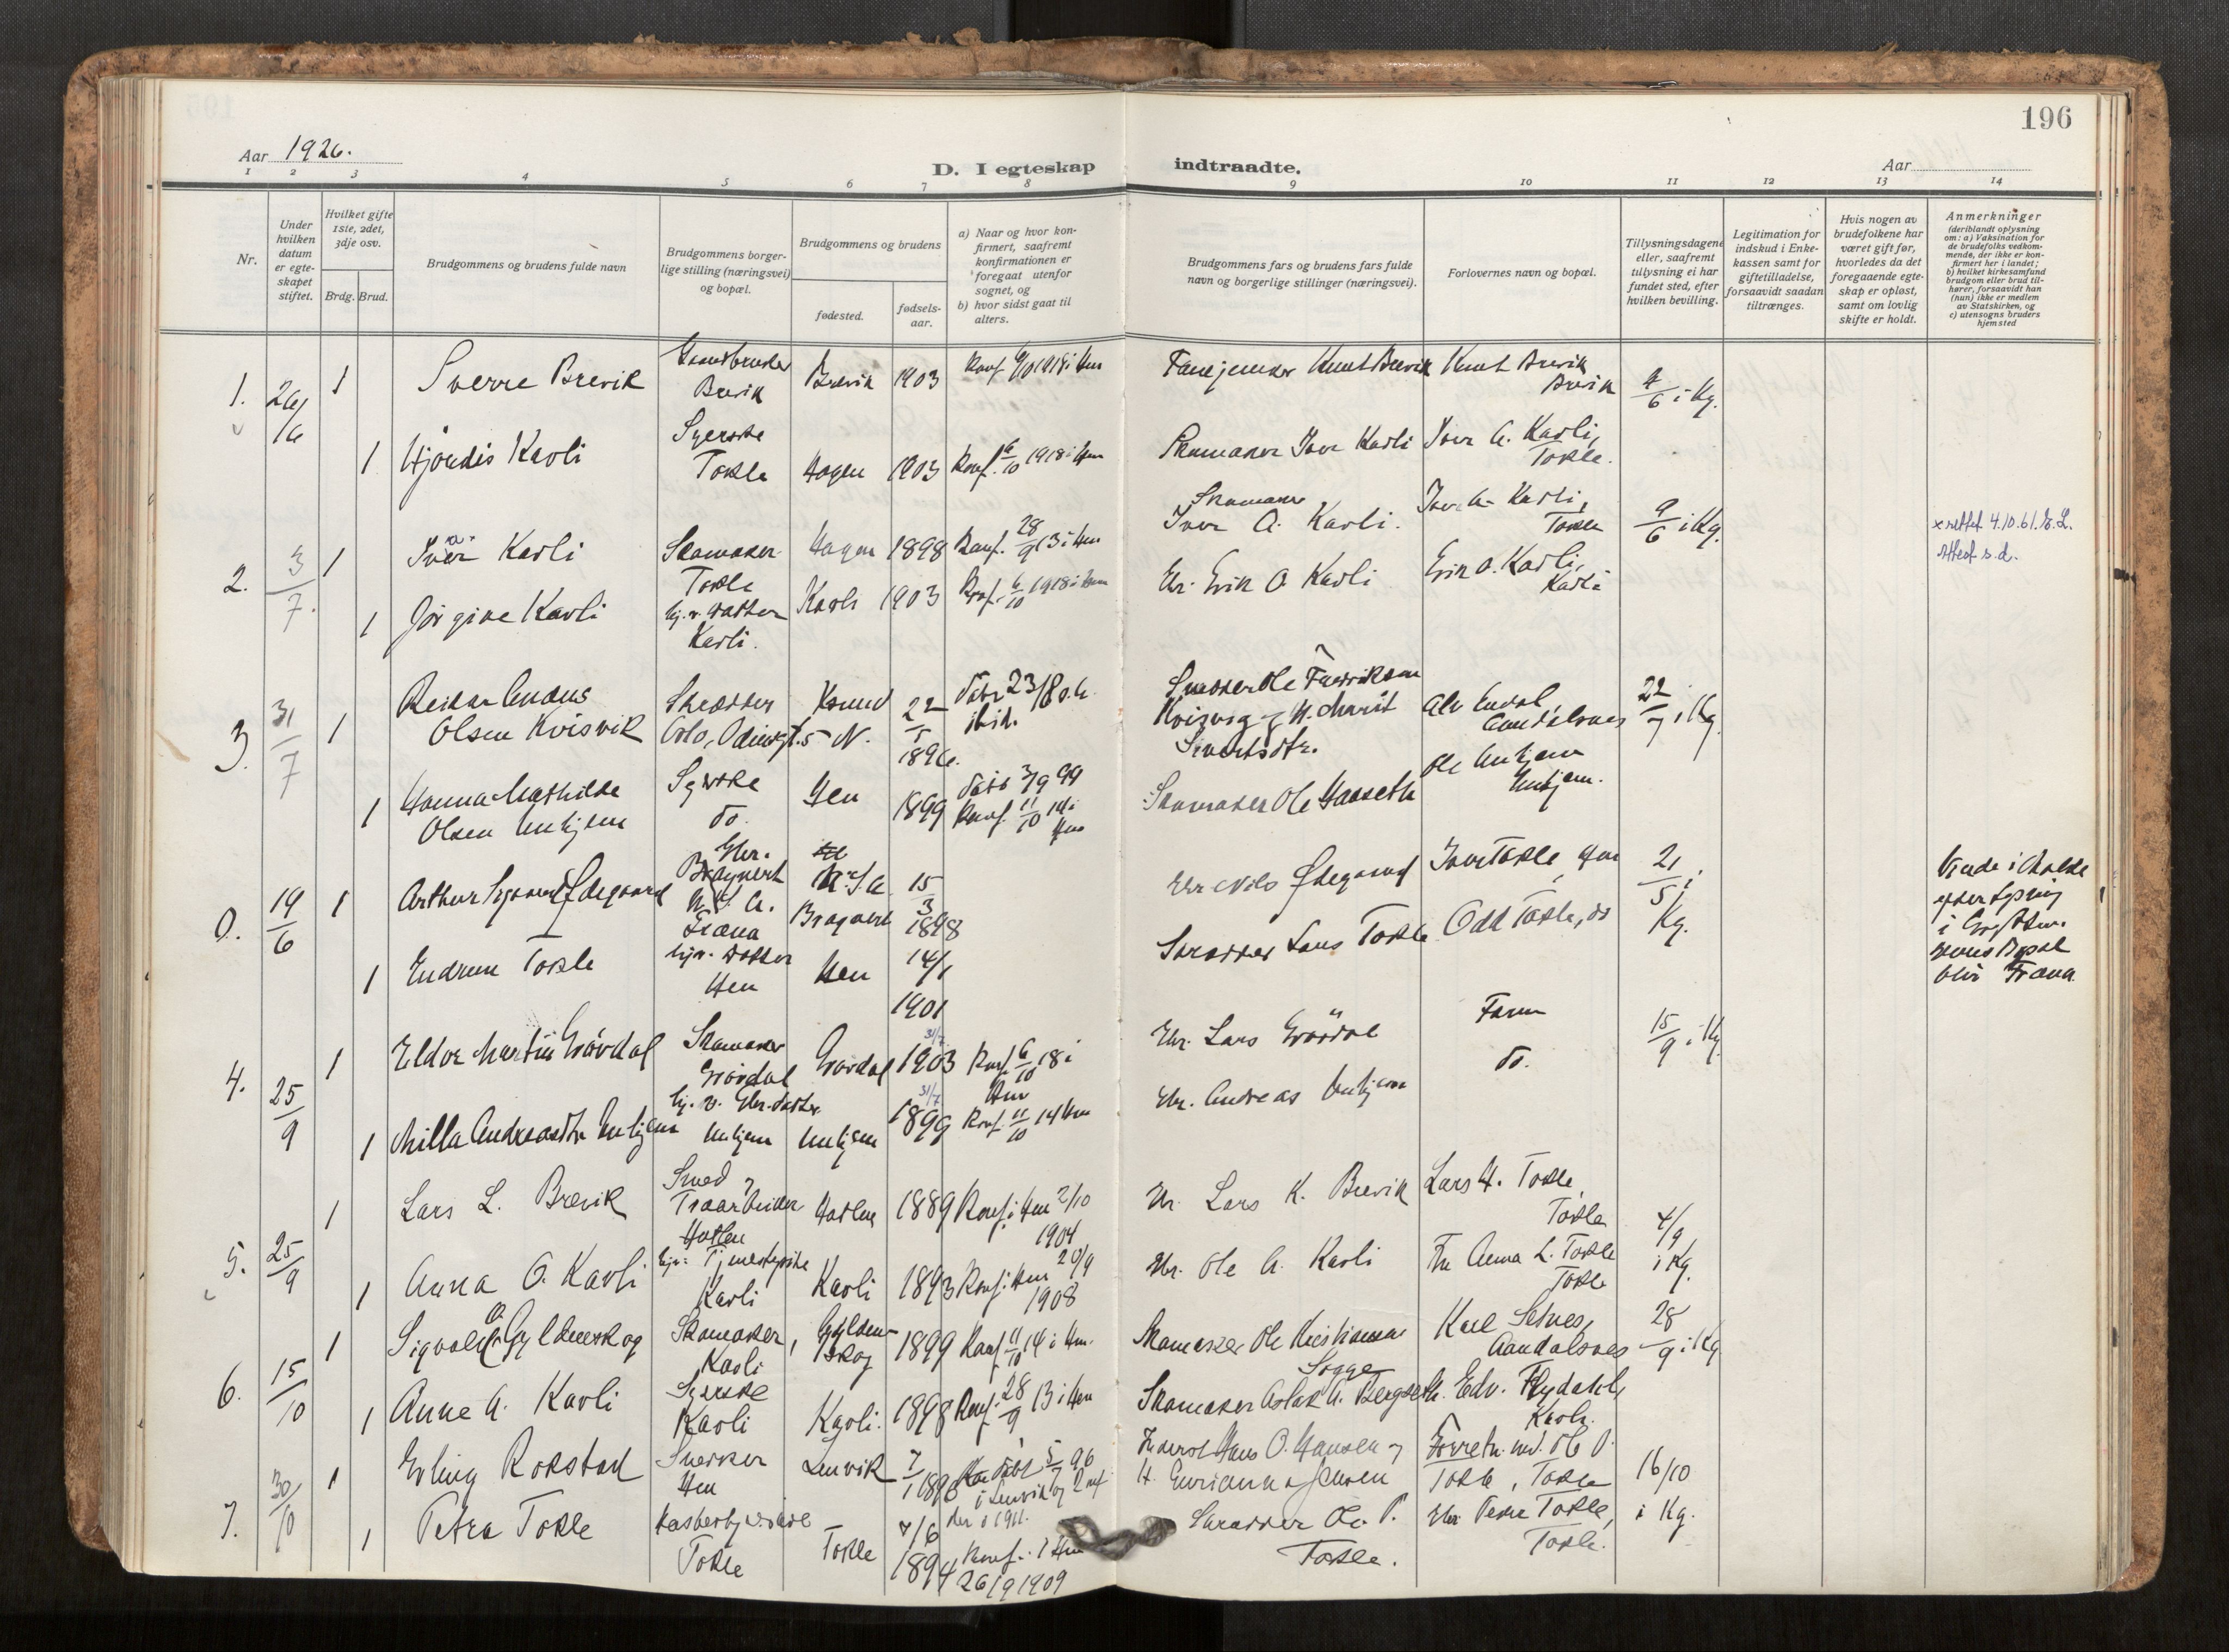 196
Aar 1926.
D. I egteskap indtraadte.
Aar
1 2 3 4 5 6 7 8 9 10 11 12 13 14
Nr.
Under hvilken datum er egteskapet stiftet.
Hvilket gifte 1ste, 2det, 3dje osv.
Brdg. Brud.
Brudgommens og brudens fulde navn
Brudgommens borgerlige stilling (næringsvei) og bopæl.
Brudgommens og brudens
fødested.
fødselsaar.
a) Naar og hvor konfirmert, saafremt konfirmationen er foregaat utenfor sognet, og
b) hvor sidst gaat til alters.
Brudgommens fars og brudens fars fulde navn og borgerlige stillinger (næringsvei).
Forlovernes navn og bopæl.
Tillysningsdagene eller, saafremt tillysning ei har fundet sted, efter hvilken bevilling.
Legitimation for indskud i Enkekassen samt for giftetilladelse, forsaavidt saadan tiltrænges.
Hvis nogen av brudefolkene har været gift før, hvorledes da det foregaaende egteskap er opløst, samt om lovlig skifte er holdt.
Anmerkninger
(deriblandt oplysning om: a) Vaksination for de brudefolks vedkommende, der ikke er konfirmert her i landet; b) hvilket kirkesamfund brudgom eller brud tilhører, forsaavidt han (hun) ikke er medlem av Statskirken, og c) utensogns bruders hjemsted
1. 26/6 1 Sverre Brevik Brevik Brevik 1903 Knut Brevik Knut Brevik Brevik 4/6 i Kg.
1 Hjördis Kavli Syerske Tokle Hagen 1903 Konf. 6/10 1918 i Hen Skomaker Iver Kavli Iver A. Kavli, Tokle.
2. 3/7. 1 Iver Kavli Skomaker Tokle Hagen 1898 Konf. 28/9 13 i Hen Skomaker Iver A. Kavli. Iver A. Kavli, Tokle 9/6 i Kg. x rettet 4.10.61. Attest s.d.
1 Jörgine Kavli hj. v. datter Kavli. Kavli 1903 Konf. 6/10 1918 i Hen Gbr. Erik O. Kavli Erik O. Kavli, Kavli
3. 31/7 1 Reidar Olsen Kvisvik Oslo, 5 N. 22/5 1896. Døbt 23/8 s.a. ibid. Snekker Ole Sivertsdtr. Aandalsnes 22/7 i Kg
1 Hanna Mathilde Olsen Unhjem Syerske do. Hen 1899 Døbt 3/9 99 Konf. 11/10 14 i Hen Skomaker Ole Ole Unhjem Unhjem.
0. 19/6 1 Arthur Ødegaard Gbr. U.S.A. Fræna U.S.A. 15/3 1898 Gbr Nils Ødegaard Iver Tokle, Hen 21/5 i Kg. Viede i Molde efter lysning i
1 Gudrun Tokle hjv. datter Hen Hen 14/1 1901 Skrædder Lars Tokle Odd Tokle, do blir Fræna
4. 25/9 1 Eldor Martin Grövdal Skomaker Grövdal Grövdal 31/7 1903 Konf. 6/10 18 i Hen Gbr. Lars Grövdal Faren 15/9 i Kg
1 Milla Andreasdtr Unhjem hj. v. Gbr. datter Unhjem Unhjem 31/7 1899 Konf. 11/10 14 Hen Gbr. Andreas Unhjem do.
5. 25/9 1 Lars L. Brevik Smed 1889 Konf. i Hen 2/10 1904 Gbr. Lars K. Brevik Lars H. Tokle, Tokle 4/9 i Kg.
1 Anna O. Kavli Kavli Kavli 1893 Konf. i Hen 20/9 1908 Gbr. Ole A. Kavli Fru Anna L. Tokle Tokle
6. 15/10 1 Sigvald Gyldenskog Skomaker, Kavli Gyldenskog 1899 Konf. 11/10 14 i Hen. Skomaker Ole Kristiansen Sogge Karl Setnes, Aandalsnes 28/9 i Kg
1 Anne A. Kavli Syerske Kavli Kavli. 1898 Konf. 28/9 13 i Hen Skomaker Aslak A. Bergseth. Edv. Flydahl, Kavli.
7. 30/10 1 Erling Rokstad Snekker Hen Lenvik 7/1 1896 døbt 5/7 96 i Lenvik og Konf. der i 1911. Hans O. Hansen og H. Jensen Ole P. Tokle, Tokle 16/10 i Kg.
1 Petra Tokle Tokle Tokle 7/6 1894 Konf. i Hen 26/9 1909 Skrædder Ole P. Tokle. Gbr. Peder Tokle, Tokle.